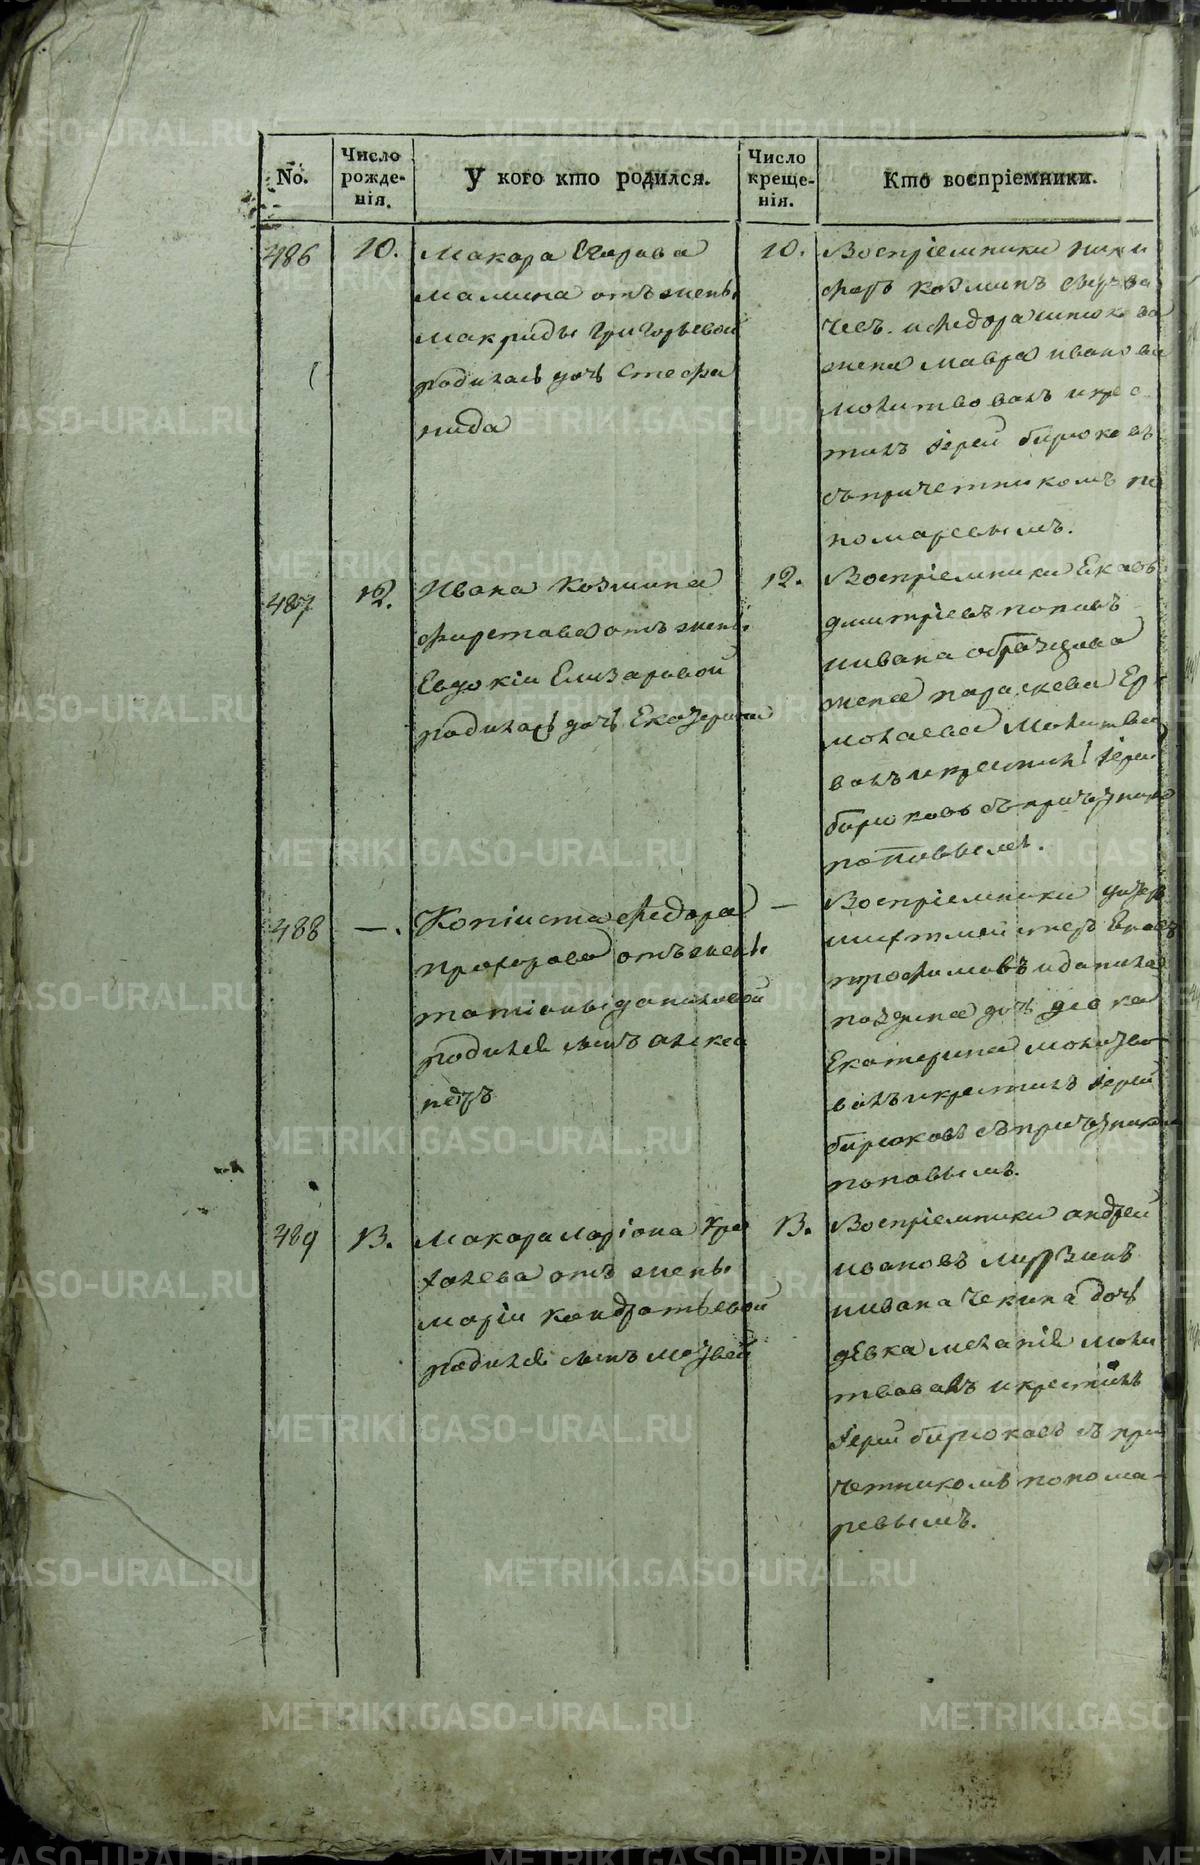 No.
Число рожде- нія.
У кого кто родился.
Число креще- нія.
Кто воспріемники.
486
10.
Макара Егарава
Мамина отъ жены
Макриды Григорьевой
родилась дочь Стефа
нида
10.
Воспріемники ники
фаръ Козминъ
и Федора
жена Мавра Иванова
молитвовалъ и кре с
тилъ Іерей Бирюковъ
съ причетникомъ по
номаревымъ.
487
12.
Ивана Козмина
отъ жены
Евдокіи Елизаровой
родилась дочь Екатерина
12.
Воспріемники
Дмитріевъ Поповъ
и Ивана Образцова
жена Параскева Ер
молаева Молитво
валъ и крестилъ Іерей
Бирюковъ съ причетнико
Поповымъ.
488
— .
Копіиста Федора
Прохорова отъ жены
Татіаны Даниловой
родился сынъ Алекса
ндръ
—
Воспріемники унтер
шихтмейстеръ
Трофимовъ и Данила
дочь девка
Екатерина молитво
валъ и крестилъ Іерей
Бирюковъ съ причетником
Поповымъ.
489
13.
Макара Ларіона
отъ жены
Маріи Кондратьевой
родился сынъ Матвей
13.
Воспріемники Андрей
Ивановъ Мурзинъ
и Ивана Чекина дочь
девка Меланія моли
твовалъ и крестилъ
Іерей Бирюковъ съ при
четникомъ понома-
ревымъ.
METRIKI.GASO-URAL.RU